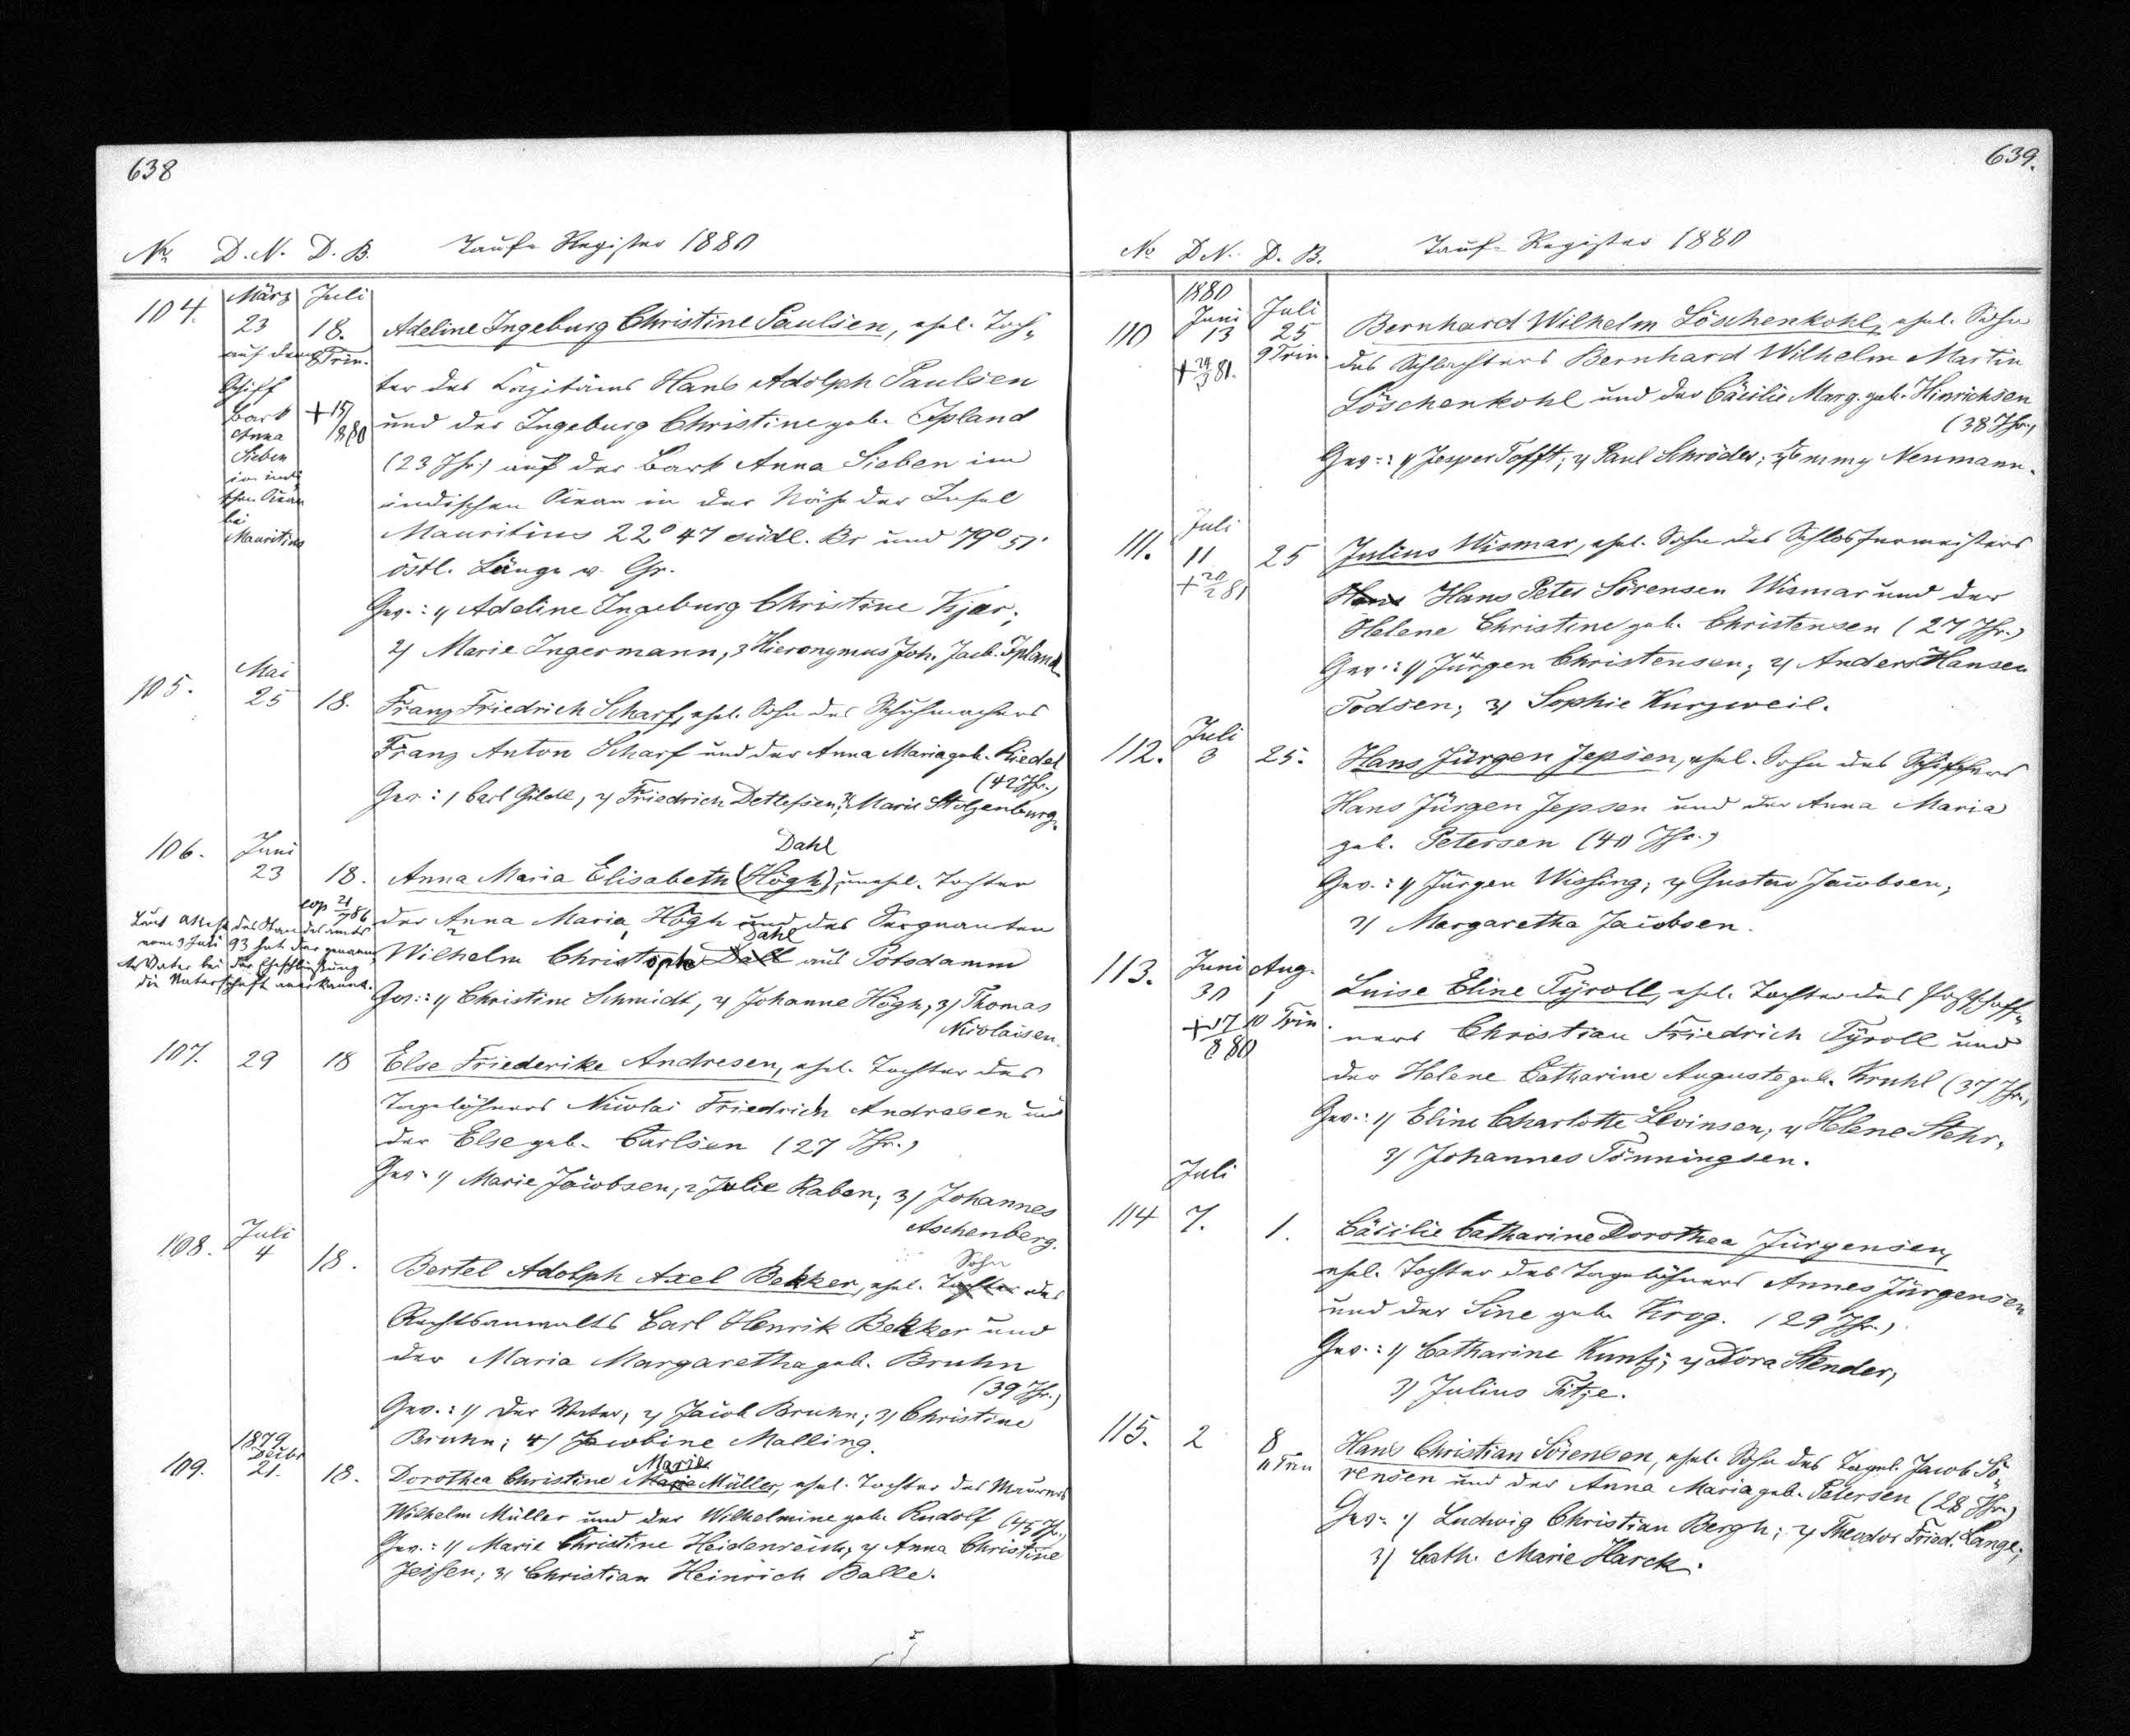 638
No D. N. D. B. Tauf-Register 1880
104. März Juli
23 18. Adeline Ingeburg Christine Paulsen, ehel. Toch-
auf dem 8 Trin.
Schiff ter des Capitäns Hans Adolph Paulsen
Bark + 15/ und der Ingeburg Christine geb. Ipland
Anna 1880
Sieben (23 Jhr.) auf der Bark Anna Sieben im
im indi
schen Ocean indischen Ocean in der Nähe der Insel
bei
Mauritius Mauritius 22° 47 südl. Br und 79° 51'
östl. Länge v. Gr.
Gev.: 1) Adeline Ingeburg Christine Kjær;
2) Marie Ingermann, 3 Hieronymus Joh. Jacb. Ipland
Mai
105. 25 18. Franz Friedrich Scharf, ehel. Sohn des Schuhmachers
Franz Anton Scharf und der Anna Maria geb. Riedel
(42 Jhr.)
Gev: 1 Carl Gilde, 2) Friedrich Detlefsen, 3) Marie Stolzenburg.
Dahl
106. Juni
23 18. Anna Maria Elisabeth (Högh), unehel. Tochter
cop 21/7 86 der Anna Maria Högh und des Sergeanten
Laut Attest des Standesamts
vom 9 Juli 93 hat der genannte
Dahl
Wilhelm Christoph Dall aus Potsdamm
Vater bei der Eheschließung
die Vaterschaft anerkannt.
Gev.: 1) Christine Schmidt, 2) Johanne Högh, 3) Thomas
Nicolaisen.
107. 29 18 Else Friederike Andresen, ehel. Tochter des
Tagelöhners Nicolai Friedrich Andresen und
der Else geb. Carlsen (27 Jhr.)
Gev: 1) Marie Jacobsen, 2 Julie Raben; 3) Johannes
Aschenberg.
Juli
108. 4 18. Sohn
Bertel Adolph Axel Bekker, ehel. Tochter des
Rechtsanwalts Carl Henrik Bekker und
der Maria Margaretha geb. Bruhn
(39 Jhr.)
Gev.: 1) der Vater, 2) Jacob Bruhn; 3) Christine
Bruhn; 4) Jacobine Malling.
1879
Decbr Marie
109. 21. 18. Dorothea Christine Marie Müller, ehel. Tochter des Maurers
Wilhelm Müller und der Wilhelmine geb. Rudolf (45 Jhr.)
Gev.: 1) Marie Christine Heidenreich, 2) Anna Christine
Jessen; 3) Christian Heinrich Balle.
639.
No D N. D. B. Tauf-Register 1880
1880
Juni Juli
110 13 25 Bernhard Wilhelm Löschenkohl, ehel. Sohn
+ 24/3 81. 9 Trin des Schlachters Bernhard Wilhelm Martin
Löschenkohl und der Cäcilie Marg. geb. Hinrichsen
(38 Jhr.)
Gev.: 1) Jesper Tofft; 2) Paul Schröder; 3) Emmy Neumann.
Juli
111. 11 25 Julius Wismar, ehel. Sohn des Schlossermeisters
+ 20/2 81 Hans Hans Peter Sörensen Wismar und der
Helene Christine geb. Christensen (27 Jhr.)
Gev.: 1) Jürgen Christensen; 2) Anders Hansen
Todsen; 3) Sophie Kurzweil.
Juli
112. 3 25. Hans Jürgen Jepsen, ehel. Sohn des Schiffers
Hans Jürgen Jepsen und der Anna Maria
geb. Petersen (40 Jhr.)
Gev.: 1) Jürgen Wissing; 2) Gustav Jacobsen;
3) Margaretha Jacobsen.
113. Juni Aug.
30 1 Luise Eline Tyroll, ehel. Tochter des Postschaff-
+ 17/8 80 10 Trin. ners Christian Friedrich Tyroll und
der Helene Catharine Auguste geb. Kruhl (37 Jhr.)
Gev.: 1) Eline Charlotte Levinsen; 2) Helene Stehr,
3) Johannes Tönningsen.
Juli
114 7. 1. Cäcilie Catharine Dorothea Jürgensen,
ehel. Tochter des Tagelöhners Annes Jürgensen
und der Sine geb. Krog. (29 Jhr.)
Gev.: 1) Catharine Kuntz; 2) Dora Stender,
3) Julius Titze.
115. 2 8 Hans Christian Sörensen, ehel. Sohn des Tagel. Jacob Sö-
11 Trin rensen und der Anna Maria geb. Petersen (28 Jhr.)
Gev: 1) Ludwig Christian Bergh; 2) Theodor Fried. Lange;
3) Cath. Marie Harck.